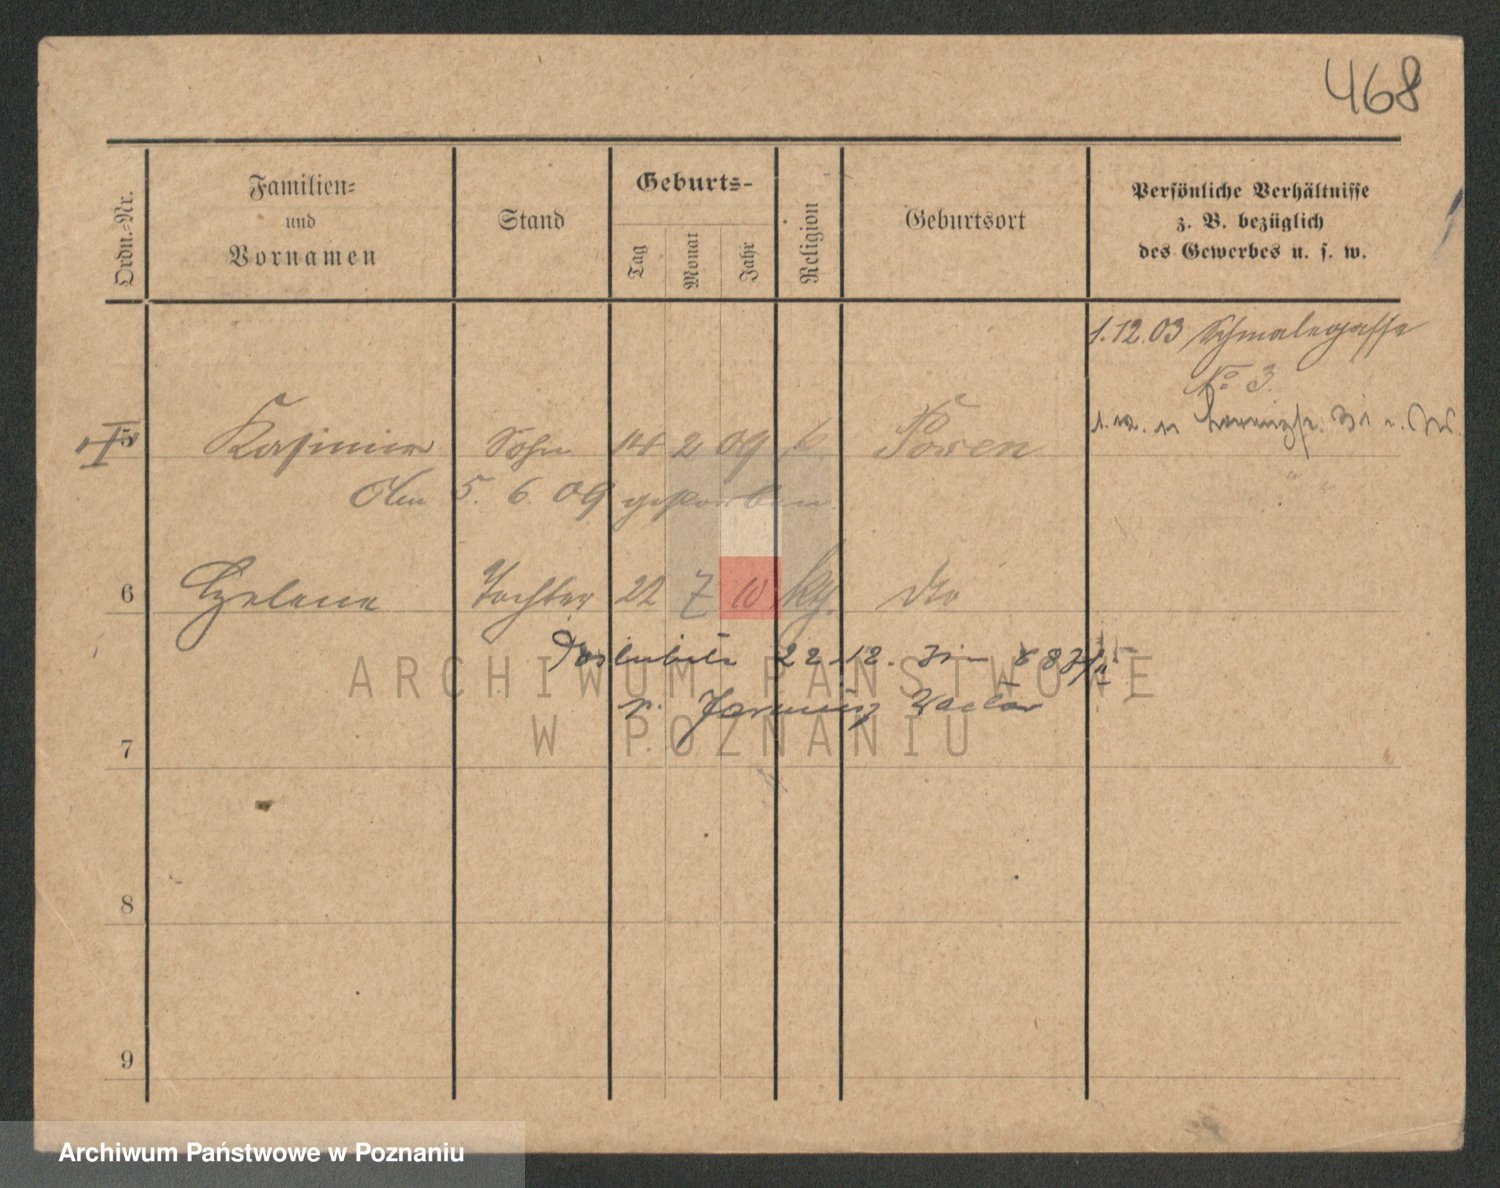 468
Ordn.-Nr.
Familien-
und
Vornamen
Stand
Geburts-
Tag
Monat
Jahr
Religion
Geburtsort
Persönliche Verhältnisse
z. B. bezüglich
des Gewerbes u. s. w.
1.12.03 Schmalegasse
No 3
5 Kasimir Sohn 14 2 09 k. Posen
Am 5. 6. 09 gestorben
6 Helene Tochter 22 7 10 kth. dto
Poslubiła 22.12.
p. Waclaw
ARCHIWUM PAŃSTWOWE
W POZNANIU
7
8
9
Archiwum Państwowe w Poznaniu